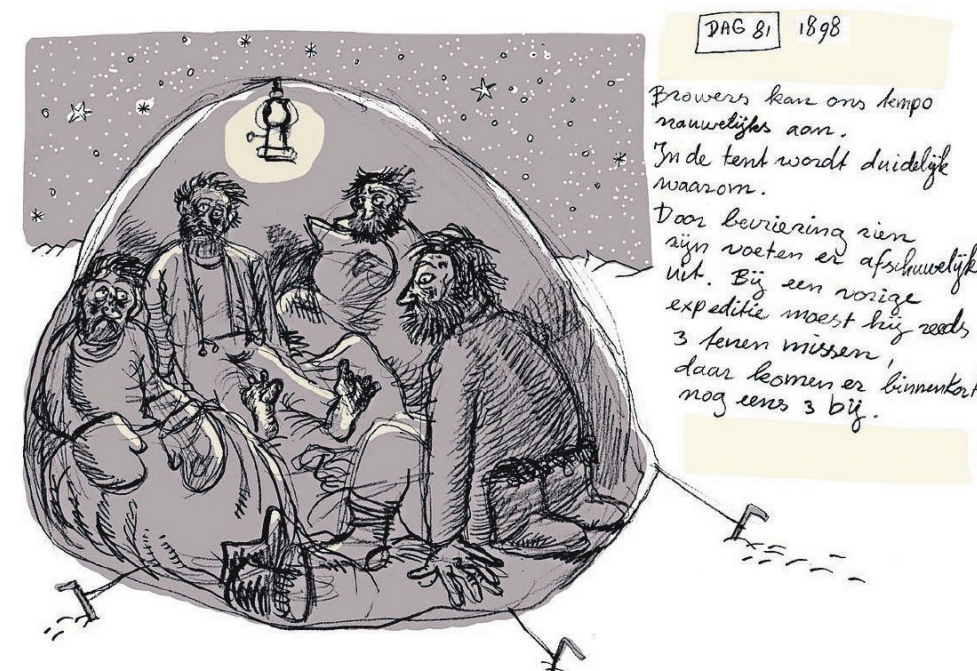 DAG 81 1898
Browers kan ons tempo
nauwelijks aan.
In de tent wordt duidelijk
waarom.
Door bevriezing zien
zijn voeten er afschuwelijk
uit. Bij een vorige
expeditie moest hij reeds
3 tenen missen,
daar komen er binnenkort
nog eens 3 bij.